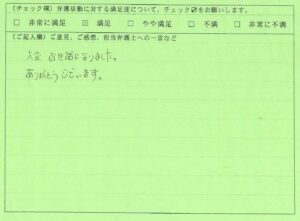 (チェック欄)弁護活動に対する満足度について、チェック☑をお願いします。
□ 非常に満足 ☑ 満足 □ やや満足 □ 不満 □ 非常に不満
(ご記入欄)ご意見、ご感想、担当弁護士への一言など
大変 お世話になりました。
ありがとうございます。